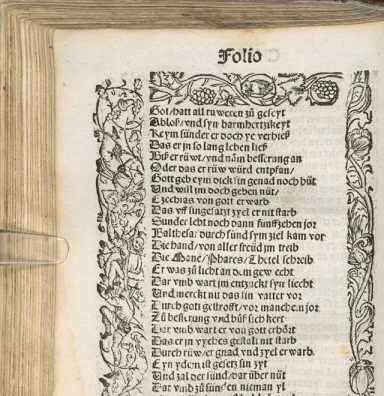 Folio
Got/hatt all ruweren zů geseyt
Abloß/vnd syn barmhertzikeyt
Keym sünder er doch ye verhieß
Das er jn so lang leben ließ
Biß er rüwt/vnd näm besserung an
Oder das er rüw würd entpfan/
Gott geb eym dick sin genad noch hüt
Und will jm doch geben nüt/
Ezechias von gott erwarb
Das vff vngesatzt zyel er nit starb
Sunder lebt noch dann funffzehen jor
Balthesar durch sünd sym ziel kam vor
Die hand/von aller freud jm treib
Die Mane/Phares/Thetel schreib
Er was zů licht an dem gewecht
Dar vmb wart jm entzuckt syn liecht
Und merckt nit das sin vatter vor
Durch gott gestrofft/vor manchen jor
Zů besserung vnd bůß sich kert
Dar vmb wart er von gott erhört
Das er jn vyches gestalt nit starb
Durch rüw/er gnad vnd zyel erwarb.
Eyn yden ist gesetz sin zyt
Und zal der sünd/dar über nüt
Dar vmb zů sünden nieman yl